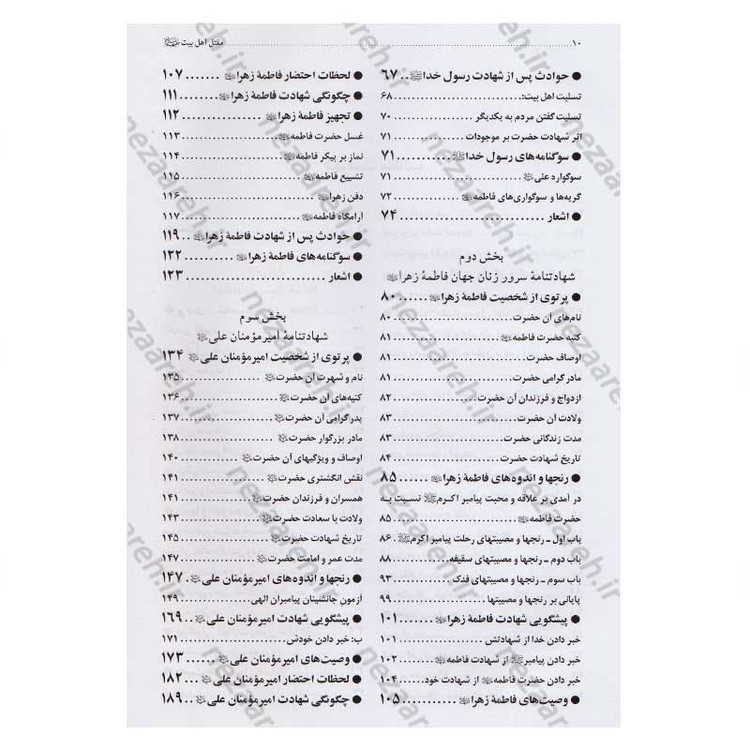 ۱۰ ........ مقتل اهل بیت
● حوادث پس از شهادت رسول خدا ..... ۶۷
تسلیت اهل بیت: ..... ۶۸
تسلیت گفتن مردم به یکدیگر ..... ۷۰
اثر شهادت حضرت بر موجودات ..... ۷۱
● سوگنامه‌های رسول خدا ..... ۷۱
سوگواره علی ..... ۷۱
گریه‌ها و سوگواری‌های فاطمه ..... ۷۲
● اشعار ..... ۷۴
بخش دوم
شهادتنامهٔ سرور زنان جهان فاطمهٔ زهرا
● پرتوی از شخصیت فاطمهٔ زهرا ..... ۸۰
نام‌های آن حضرت ..... ۸۰
کنیه حضرت فاطمه ..... ۸۱
اوصاف حضرت ..... ۸۱
مادر گرامی حضرت ..... ۸۱
ازدواج و فرزندان آن حضرت ..... ۸۲
ولادت آن حضرت ..... ۸۳
مدت زندگانی حضرت ..... ۸۳
تاریخ شهادت حضرت ..... ۸۴
● رنجها و اندوه‌های فاطمهٔ زهرا ..... ۸۵
در آمدی بر علاقه و محبت پیامبر اکرم نسبت به
حضرت فاطمه ..... ۸۵
باب اول ـ رنجها و مصیبتهای رحلت پیامبر اکرم ..... ۸۶
باب دوم ـ رنجها و مصیبتهای سقیفه ..... ۸۸
باب سوم ـ رنجها و مصیبتهای فدک ..... ۹۳
پایانی بر رنجها و مصیبتها ..... ۹۹
● پیشگویی شهادت فاطمهٔ زهرا ..... ۱۰۱
خبر دادن خدا از شهادتش ..... ۱۰۱
خبر دادن پیامبر از شهادت فاطمه ..... ۱۰۲
خبر دادن حضرت فاطمه از شهادت خود ..... ۱۰۴
● وصیت‌های فاطمهٔ زهرا ..... ۱۰۵
● لحظات احتضار فاطمهٔ زهرا ..... ۱۰۷
● چگونگی شهادت فاطمهٔ زهرا ..... ۱۱۱
● تجهیز فاطمهٔ زهرا ..... ۱۱۲
غسل حضرت فاطمه ..... ۱۱۳
نماز بر پیکر فاطمه ..... ۱۱۴
تشییع فاطمه ..... ۱۱۵
دفن زهرا ..... ۱۱۶
آرامگاه فاطمه ..... ۱۱۷
● حوادث پس از شهادت فاطمهٔ زهرا ..... ۱۱۹
● سوگنامه‌های فاطمهٔ زهرا ..... ۱۲۲
● اشعار ..... ۱۲۳
بخش سوم
شهادتنامهٔ امیرمؤمنان علی
● پرتوی از شخصیت امیرمؤمنان علی ..... ۱۳۴
نام و شهرت آن حضرت ..... ۱۳۵
کنیه‌های آن حضرت ..... ۱۳۶
پدر گرامی آن حضرت ..... ۱۳۷
مادر بزرگوار حضرت ..... ۱۳۸
اوصاف و ویژگیهای آن حضرت ..... ۱۴۰
نقش انگشتری حضرت ..... ۱۴۱
همسران و فرزندان حضرت ..... ۱۴۱
ولادت با سعادت حضرت ..... ۱۴۳
تاریخ شهادت حضرت ..... ۱۴۵
مدت عمر و امامت حضرت ..... ۱۴۷
● رنجها و اندوه‌های امیرمؤمنان علی ..... ۱۴۷
آزمون جانشینان پیامبران الهی ..... ۱۴۹
● پیشگویی شهادت امیرمؤمنان علی ..... ۱۶۹
ب: خبر دادن خودش ..... ۱۷۱
● وصیت‌های امیرمؤمنان علی ..... ۱۷۳
● لحظات احتضار امیرمؤمنان علی ..... ۱۸۲
● چگونگی شهادت امیرمؤمنان علی ..... ۱۸۹
nezaareh.ir